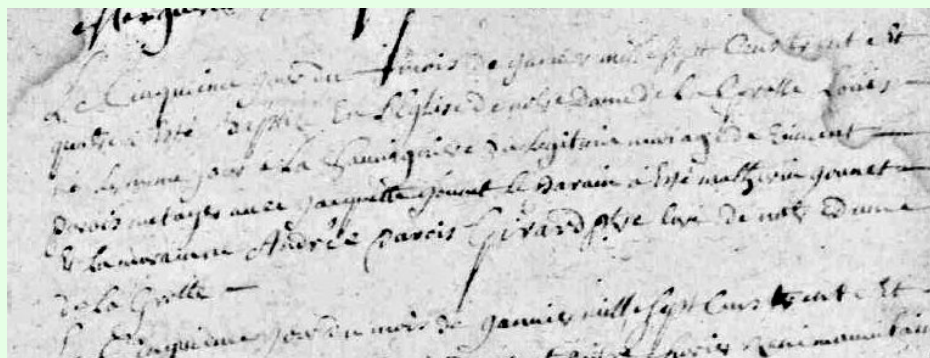 Le Cinquieme jour du mois de janvier mil sept Cens trente et
quatre a esté Baptisé En l'Eglise de notre Dame de la Grolle Louis
né le mesme jour a la du legitime mariage de Vincent
parois metayer avec jacquette gounet le parain a esté mathurin gounet
Et la maraine Andrée parois Girard ptre curé de notre dame
de la Grolle
Le Cinquieme jour du mois de janvier mille sept Cens trente Et